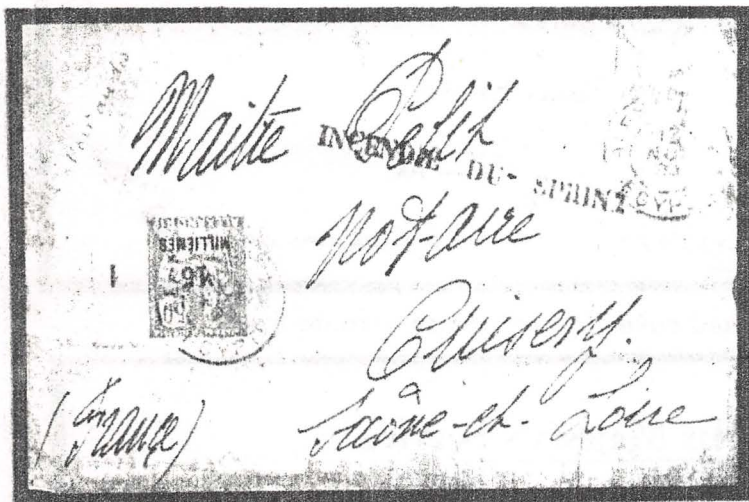 Maître Petit
INCENDIE DU SPRINX
notaire
MILLIEMES
16
50
1
Cuisery.
(France)
Saône-et-Loire